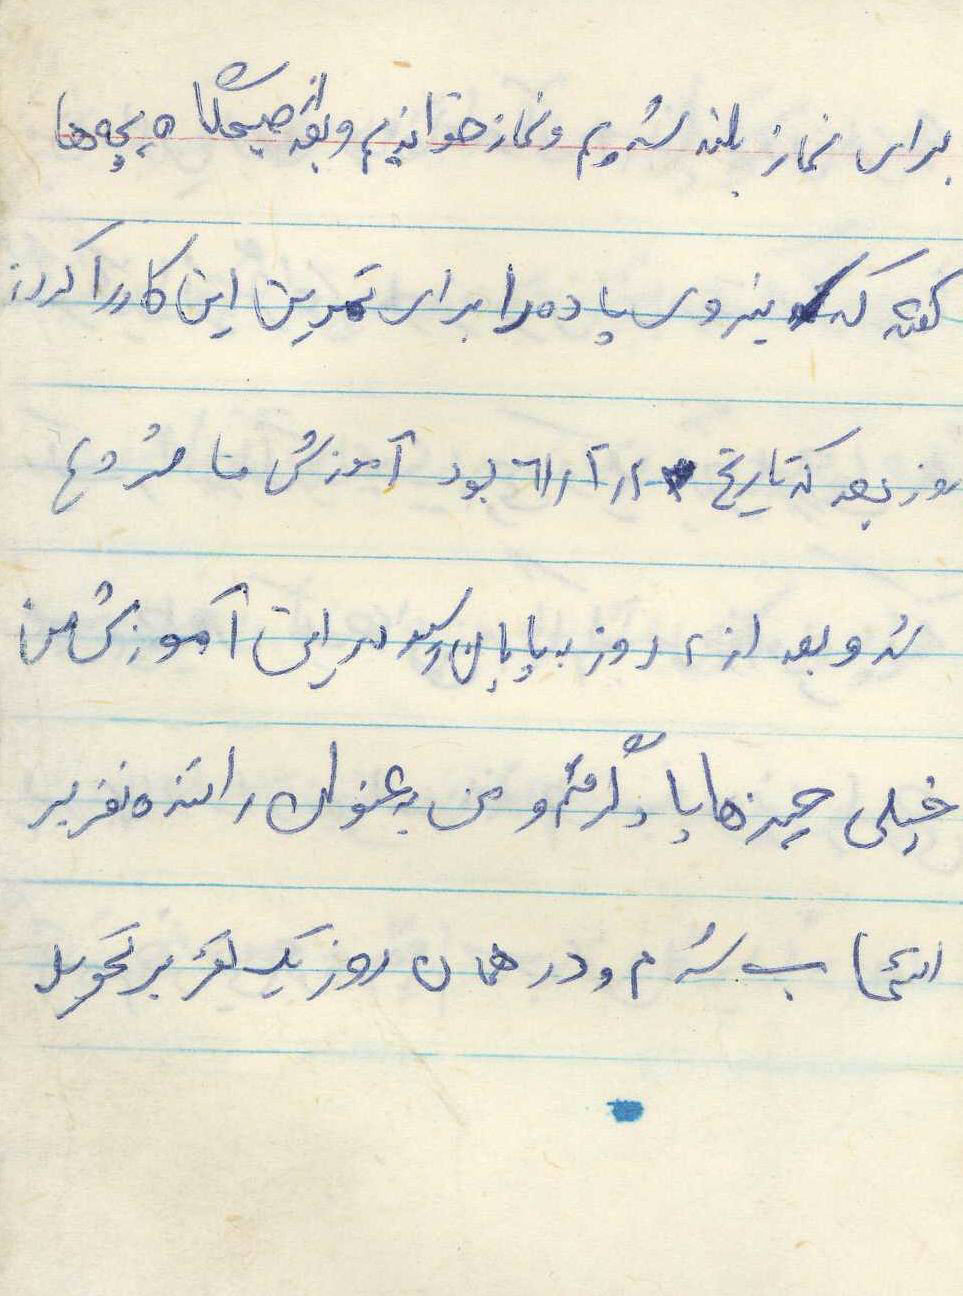 برای نماز بلند شدیم و نماز خواندیم و بعد از صبحگاه بچه‌ها
گفتند که نیروی پیاده را برای تمرین این کار را کردند
روز بعد که تاریخ ۲ر۲ر۶۱ بود آموزش ما شروع
شد و بعد از ۲ روز به پایان رسید در این آموزش من
خیلی چیزها یاد گرفتم و من به عنوان راننده نفربر
انتخاب شدم و در همان روز یک نفربر تحویل